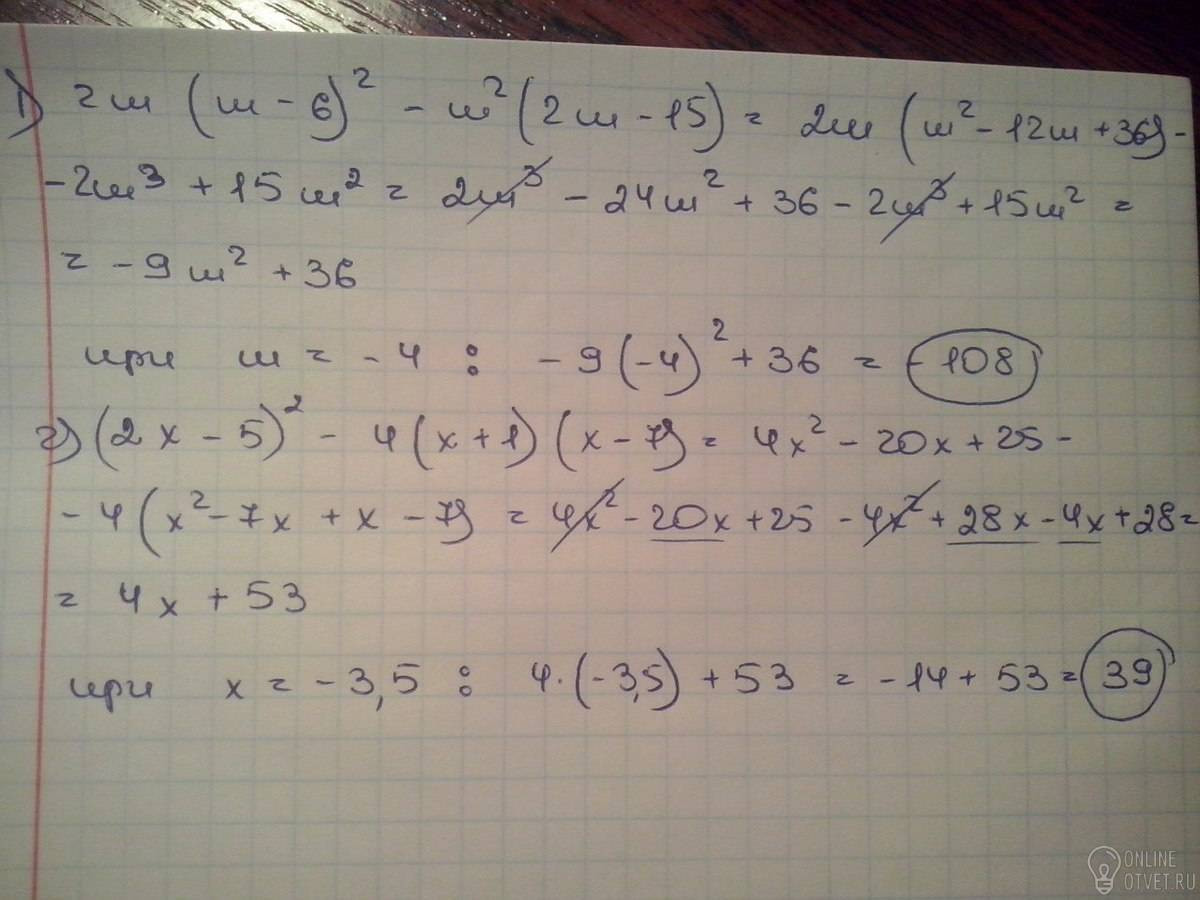 1) 2m (m - 6)² - m² (2m - 15) = 2m (m² - 12m + 36) -
- 2m³ + 15m² = 2m³ - 24m² + 36 - 2m³ + 15m² =
= -9m² + 36
при m = -4 : -9(-4)² + 36 = -108
2) (2x - 5)² - 4(x+1)(x-7) = 4x² - 20x + 25 -
- 4(x² - 7x + x - 7) = 4x² - 20x + 25 - 4x² + 28x - 4x + 28 =
= 4x + 53
при x = -3,5 : 4·(-3,5) + 53 = -14 + 53 = 39
ONLINE
OTVET.RU